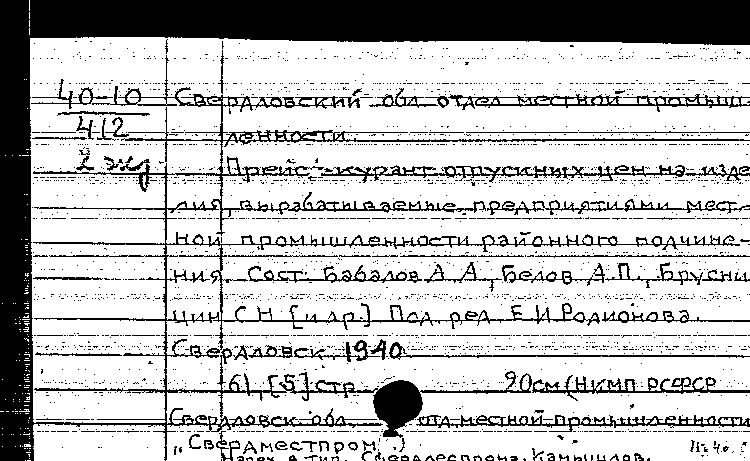 40-10 Свердловский обл. отдел местной промыш-
412 ленности.
2 экз Прейс-курант отпускных цен на изде-
лия, вырабатываемые предприятиями мест-
ной промышленности районного подчине-
ния. Сост. Бабалов А. А., Белов А. П., Брусни-
цин С. Н. [и др.] Под ред. Е. И. Родионова.
Свердловск, 1940.
61, [5] стр. 20 см (НКМП РСФСР
Свердловск. обл. отд. местной промышленности
„Свердместпром“.)
Напеч. в тип. Свердлеспрома, Камышлов.